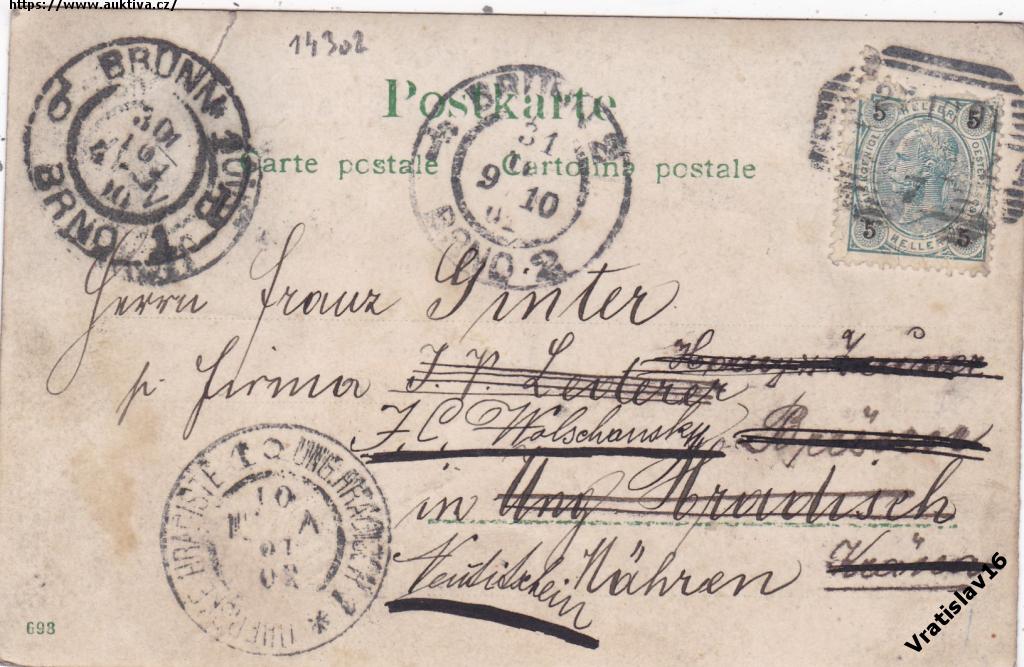 https://www.auktiva.cz/
14302
Postkarte
Carte postale Cartolina postale
BRÜNN 1
BRNO 1
30
10
BRNO 2
31
9 10
5 HELLER 5
5 HELLER 5
Herrn Franz Ginter
p. Firma J. P. Lederer
J. C. Wolschansky
Brünn
in Ung Hradisch
Neutitschein Mähren
UNG. HRADISCH 1
UHERSKÉ HRADIŠTĚ 1
10
02
693
Vratislav16